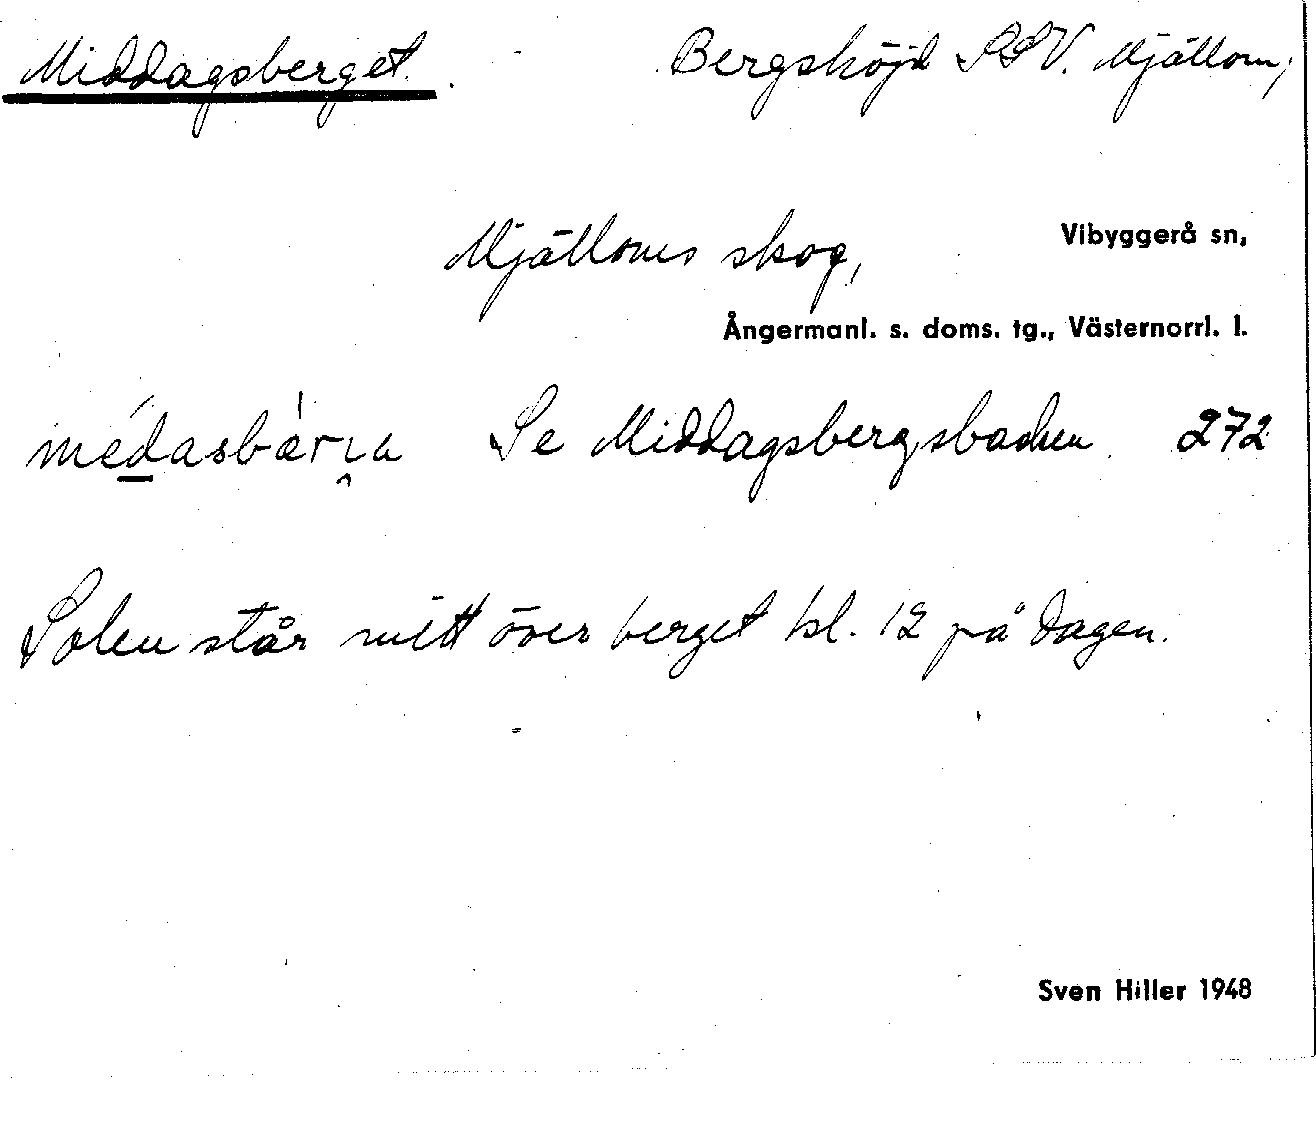 Middagsberget. Bergshöjd SSV. Mjällom,
Mjälloms skog, Vibyggerå sn,
Ångermanl. s. doms. tg., Västernorrl. l.
Se Middagsbergsbacken. 272
Solen står mitt över berget kl. 12 på dagen.
Sven Hiller 1948